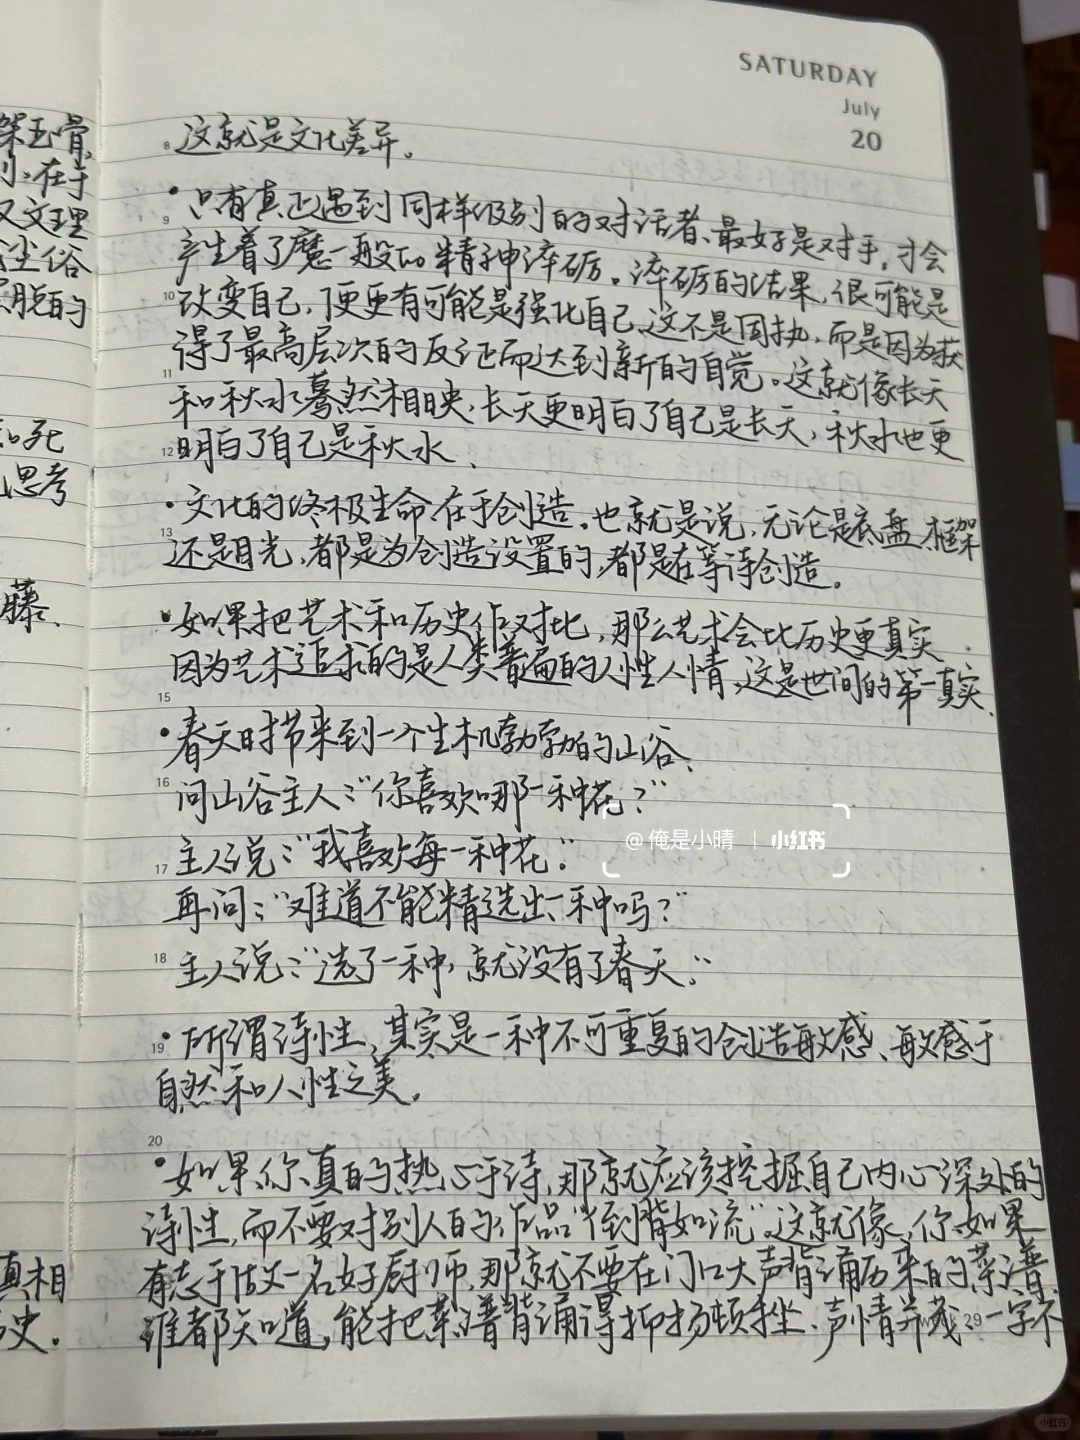 SATURDAY
July
20
架玉骨,
在于
又文理
尘俗
脱的
和死
思考
藤、
真相
史.
8 这就是文化差异。
• 只有真正遇到同样级别的对话者、最好是对手,才会
9
产生着了魔一般的精神淬砺。淬砺的结果,很可能是
10 改变自己,便更有可能是强化自己,这不是固执,而是因为获
得了最高层次的反证而达到新的自觉。这就像长天
11
和秋水蓦然相映,长天更明白了自己是长天,秋水也更
12 明白了自己是秋水、
• 文化的终极生命,在于创造。也就是说,无论是底盘、框架
13
还是目光,都是为创造设置的,都是在等待创造。
• 如果把艺术和历史作对比,那么艺术会比历史更真实.
因为艺术追求的是人类普遍的人性人情,这是世间的第一真实.
15
• 春天时节来到一个生机勃勃的山谷、
16 问山谷主人:“你喜欢哪一种花?”
@俺是小晴 | 小红书
17 主人说:“我喜欢每一种花。”
再问:“难道不能精选出一种吗?”
18 主人说:“选了一种,就没有了春天。”
19 • 所谓诗性,其实是一种不可重复的创造敏感、敏感于
自然和人性之美。
20
• 如果你真的热心于诗,那就应该挖掘自己内心深处的
诗性,而不要对别人的作品“倒背如流”。这就像,你如果
有志于做一名好厨师,那就不要在门口大声背诵历来的菜谱.
谁都知道,能把菜谱背诵得抑扬顿挫、声情并茂、一字不
29
小红书